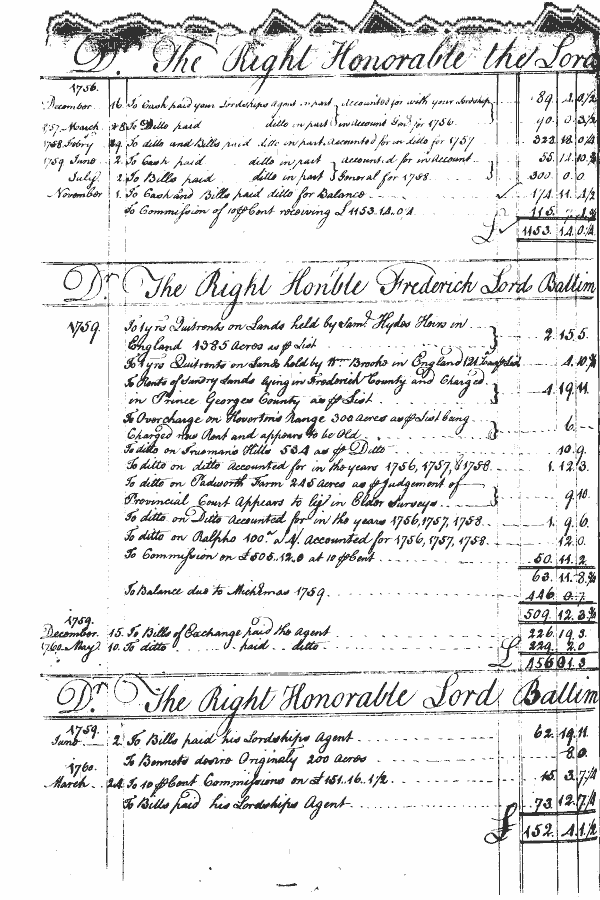 Dr. The Right Honorable the Lord
1756.
December 16 To Cash paid your Lordships Agent in part } Accounted for with your Lordship 89. 2. 0 1/2
1757 March To Ditto paid ditto in part } in Account for 1756. 90. 0. 3 1/2
1758 Febry To ditto and Bills paid ditto in part Accounted for in ditto for 1757 323. 18. 0 1/4
1759 June 2 To Cash paid ditto in part } accounted for in Account 55. 14. 10 3/4
July 2 To Bills paid ditto in part } General for 1758 300. 0. 0
November 1. To Cash and Bills paid ditto for Balance 174. 11. 4 1/2
To Commission of 10 ⅌ Cent receiving £1153.14.0 1/4 115. 7. 4 3/4
£ 1153. 14. 0 1/4
Dr. The Right Honble Frederick Lord Baltim
1759. To 1 yrs Quitrents on Lands held by Saml. Hydes Heirs in
England 1385 Acres as ⅌ List } 2. 15. 5.
To 1 yrs Quitrents on Lands held by Wm. Brooke in England 121 4. 10 1/2
To Rents of Sundry Lands lying in Frederick County and Charged
in Prince Georges County as ⅌ List } 4. 19. 11.
To Overcharge on Range 300 acres as ⅌ List being
Charged new Rent and appears to be Old } 6.
To ditto on Truemans Hills 534 as ⅌ Ditto 10. 9.
To ditto on ditto Accounted for in the years 1756, 1757, & 1758 1. 12. 3.
To ditto on Padworth Farm 245 Acres as ⅌ Judgement of
Provincial Court Appears to lye in Elder Surveys } 9. 10
To ditto on Ditto Accounted for in the years 1756, 1757, 1758 1. 9. 6.
To ditto on Ralpho 100 a Accounted for 1756, 1757, 1758 12. 0.
To Commission on £505.12.0 at 10 ⅌ Cent 50. 11. 2.
63. 11. 8 3/4
To Balance due to Michemas 1759. 446. 0. 7.
509. 12. 3 3/4
1759.
December. 15. To Bills of Exchange paid the Agent 226. 19. 3.
1760 May 10. To ditto paid ditto 229. 2. 0
£ 456. 1. 3
Dr. The Right Honorable Lord Baltim
1759.
June 2 To Bills paid his Lordships Agent 62. 19. 11.
To Bennets desire Originaly 200 Acres 8. 0.
1760.
March 24 To 10 ⅌ Cent Commissions on £151.16.1 1/2 15. 3. 7 1/4
To Bills paid his Lordships Agent 73. 12. 7 1/4
£ 152. 4. 1 1/2